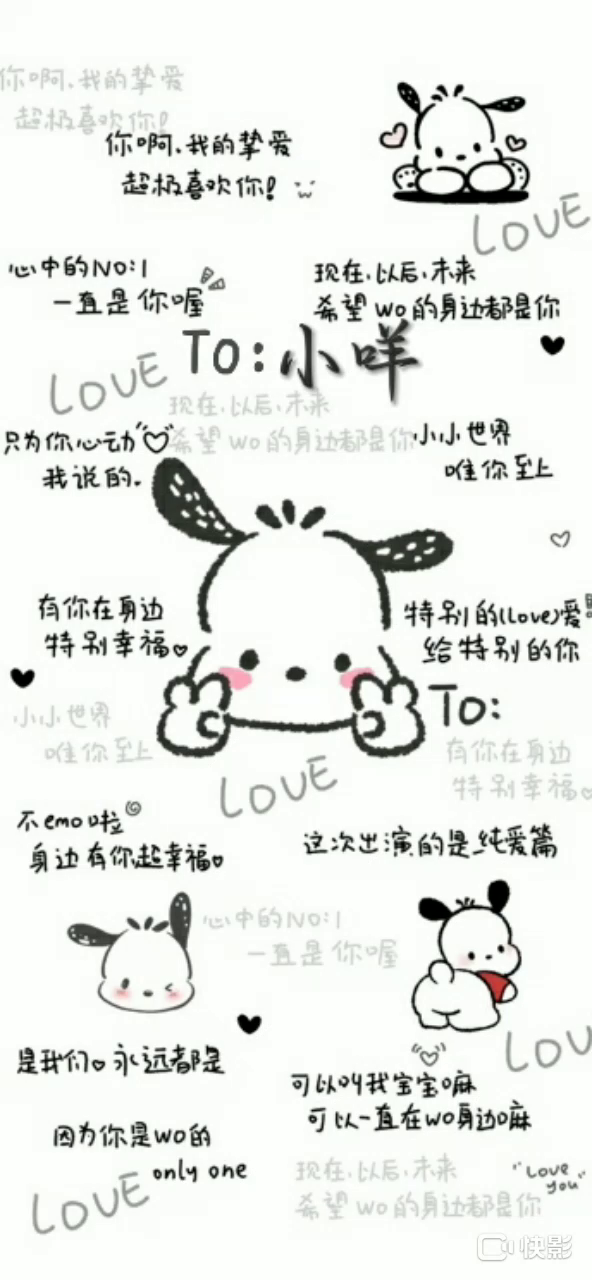 你啊、我的挚爱
超极喜欢你!
你啊、我的挚爱
超极喜欢你!
LOVE
心中的NO:1
一直是你喔
现在、以后、未来
希望wo的身边都是你
To:小咩
LOVE
现在、以后、未来
希望wo的身边都是你
只为你心动
我说的.
小小世界
唯你至上
有你在身边
特别幸福
特别的(Love)爱
给特别的你
To:
小小世界
唯你至上
有你在身边
特别幸福
LOVE
不emo啦
身边有你超幸福
这次出演的是纯爱篇
心中的NO:1
一直是你喔
是我们 永远都是
LOV
可以叫我宝宝嘛
可以一直在wo身边嘛
因为你是wo的
only one
LOVE
现在、以后、未来
希望wo的身边都是你
"Love
you"
快影